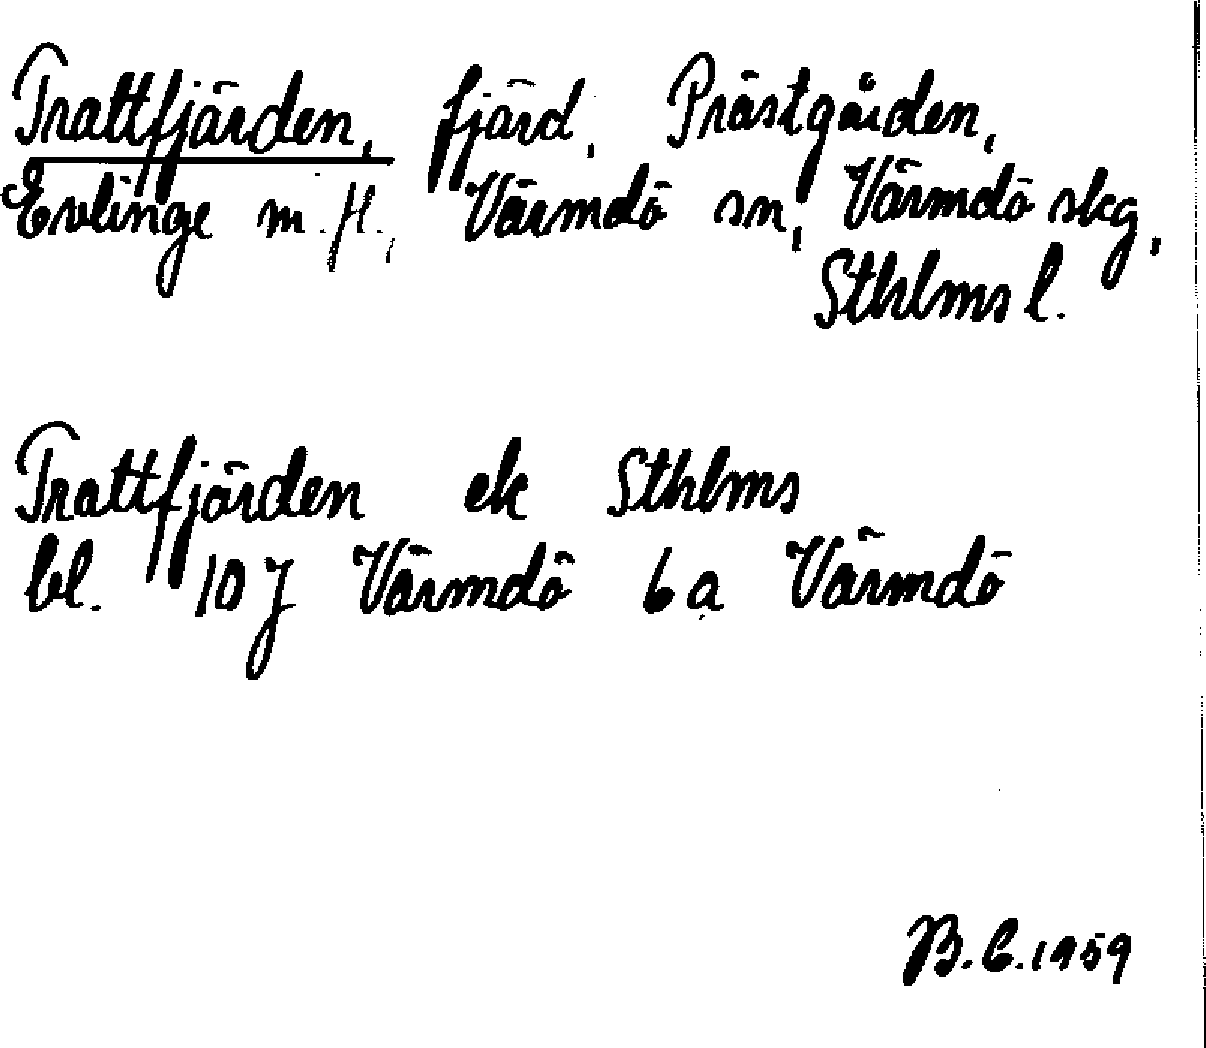 Trattfjärden, fjärd, Prästgården,
Evlinge m.fl., Värmdö sn, Värmdö skg,
Sthlms l.
Trattfjärden ek Sthlms
bl. 10J Värmdö 6a Värmdö
B.C.1959